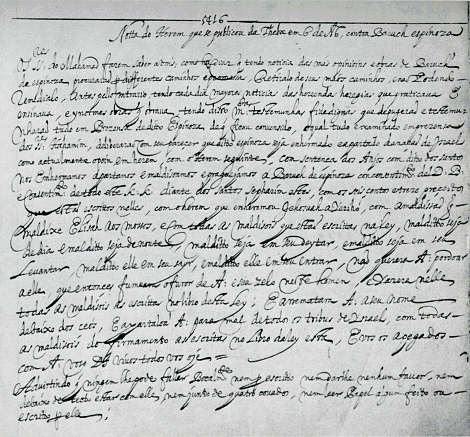 5416
Notta do Herem que se publicou da Theba em 6 de Ab, contra Baruch espinoza
Os SS.res do Mahamad fazem saber a vms como a dias q tendo noticia das mas opinioins e obras de Baruch
de espinoza procuraraõ p differentes caminhos e promessas Retiralo de seus maos caminhos, e naõ Podendo
Remedialo, Antes pello contrario, tendo cada dia mayores noticias das horrendas heregias que praticava E
ensinava, e ynormes obras q obrava, tendo disto m.tas testemunhas fidedignas que depugeraõ e testemu
nharaõ tudo em Prezensa de dito Espinoza, de q ficou convensido, o qual tudo examinado em prezensa
dos SS.res Hahamim, deliberaraõ com seu parecer que dito espinoza seja enhermado e apartado da naçaõ de Israel
como actualmente o poin em herem, com o Herem seguinte; Com sentença dos Anjos com dito dos santos
nos Enhermamos apartamos e maldisoamos e praguejamos a Baruch de espinoza com consentim.to del D. B.
e consentim.to de todo este K. K. diante dos santos Sepharim estes, com os seis centos e treze preceitos
que estaõ escritos nelles, com o herem que enheremou Jehosuah a Yeriho, com a maldissaõ q
maldixe Elisah aos mossos, e com todas as maldisois que estaõ escritas na Ley, malditto seja
de dia e malditto seja de noute, malditto seja em seu deytar, e malditto seja em seu
Levantar, malditto elle em seu sayr, e malditto elle em seu entrar, naõ querera A: perdoar
a elle, que entonces fumeara o furor de A: e seu zelo neste homem, e yazera nelle
todas as maldisois as escrittas no libro desta Ley; E arrematara A: a seu nome
debaixo dos ceos, E apartaloa A: para mal de todos os tribus de Israel, com todas
as maldisois do firmamento as escritas no Libro da Ley esta, E vos os apegados
com A: vos D.s vivos todos vos oje =
Advirtindo q ninguem lhe pode fallar Bocalm.te nem p escrito nem darlhe nenhum favor, nem
debaixo de tecto estar com elle, nem junto de quatro covados, nem leer Papel algum feito ou
escrito p elle;